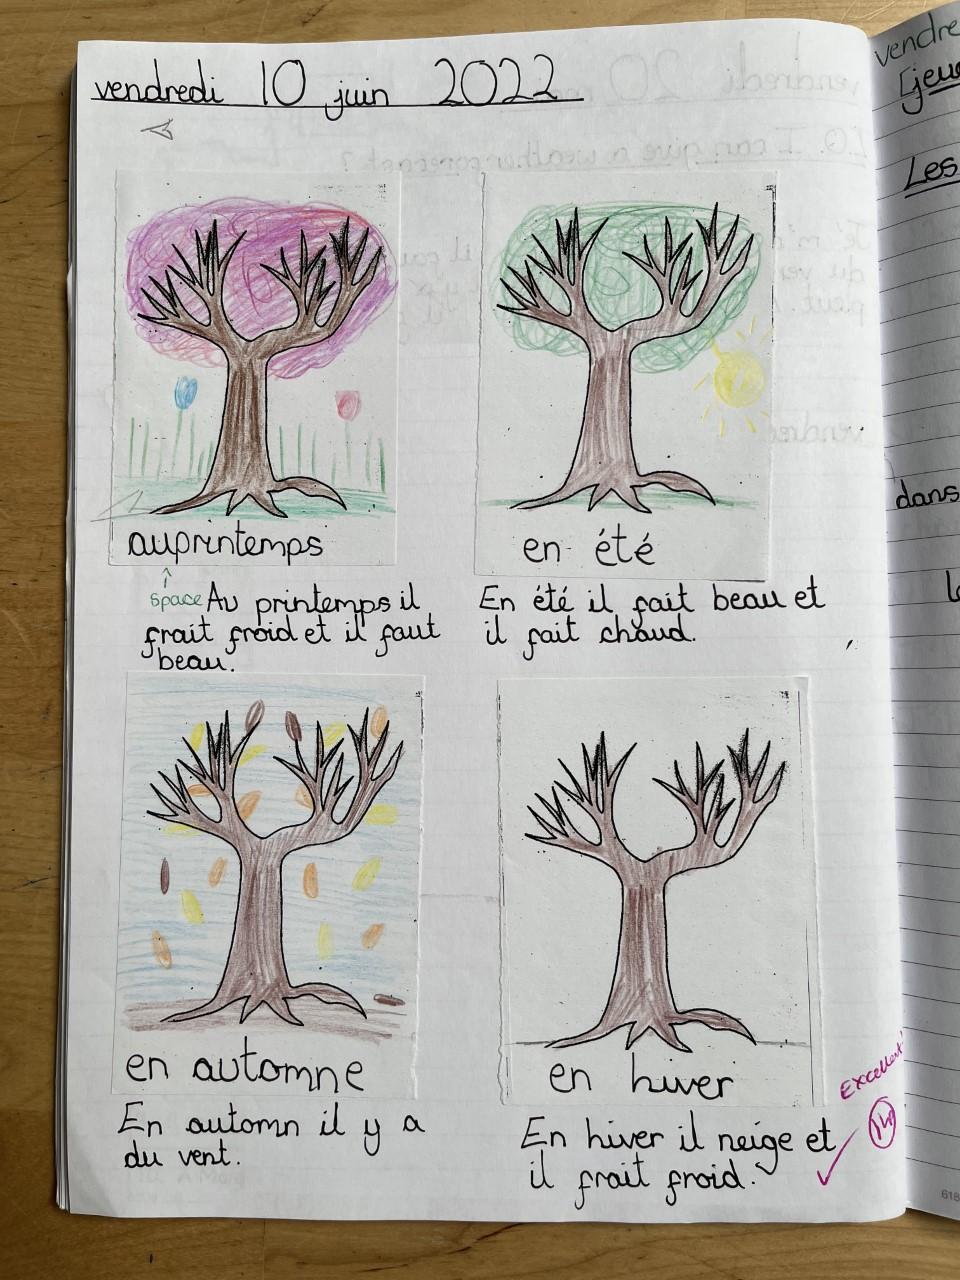 vendredi 10 juin 2022
auprintemps
space
Au printemps il
frait froid et il faut
beau.
en été
En été il fait beau et
il fait chaud.
en automne
En automn il y a
du vent.
en hiver
En hiver il neige et
il frait froid.
Excellent!
vendre
jeu
Les
dans
618